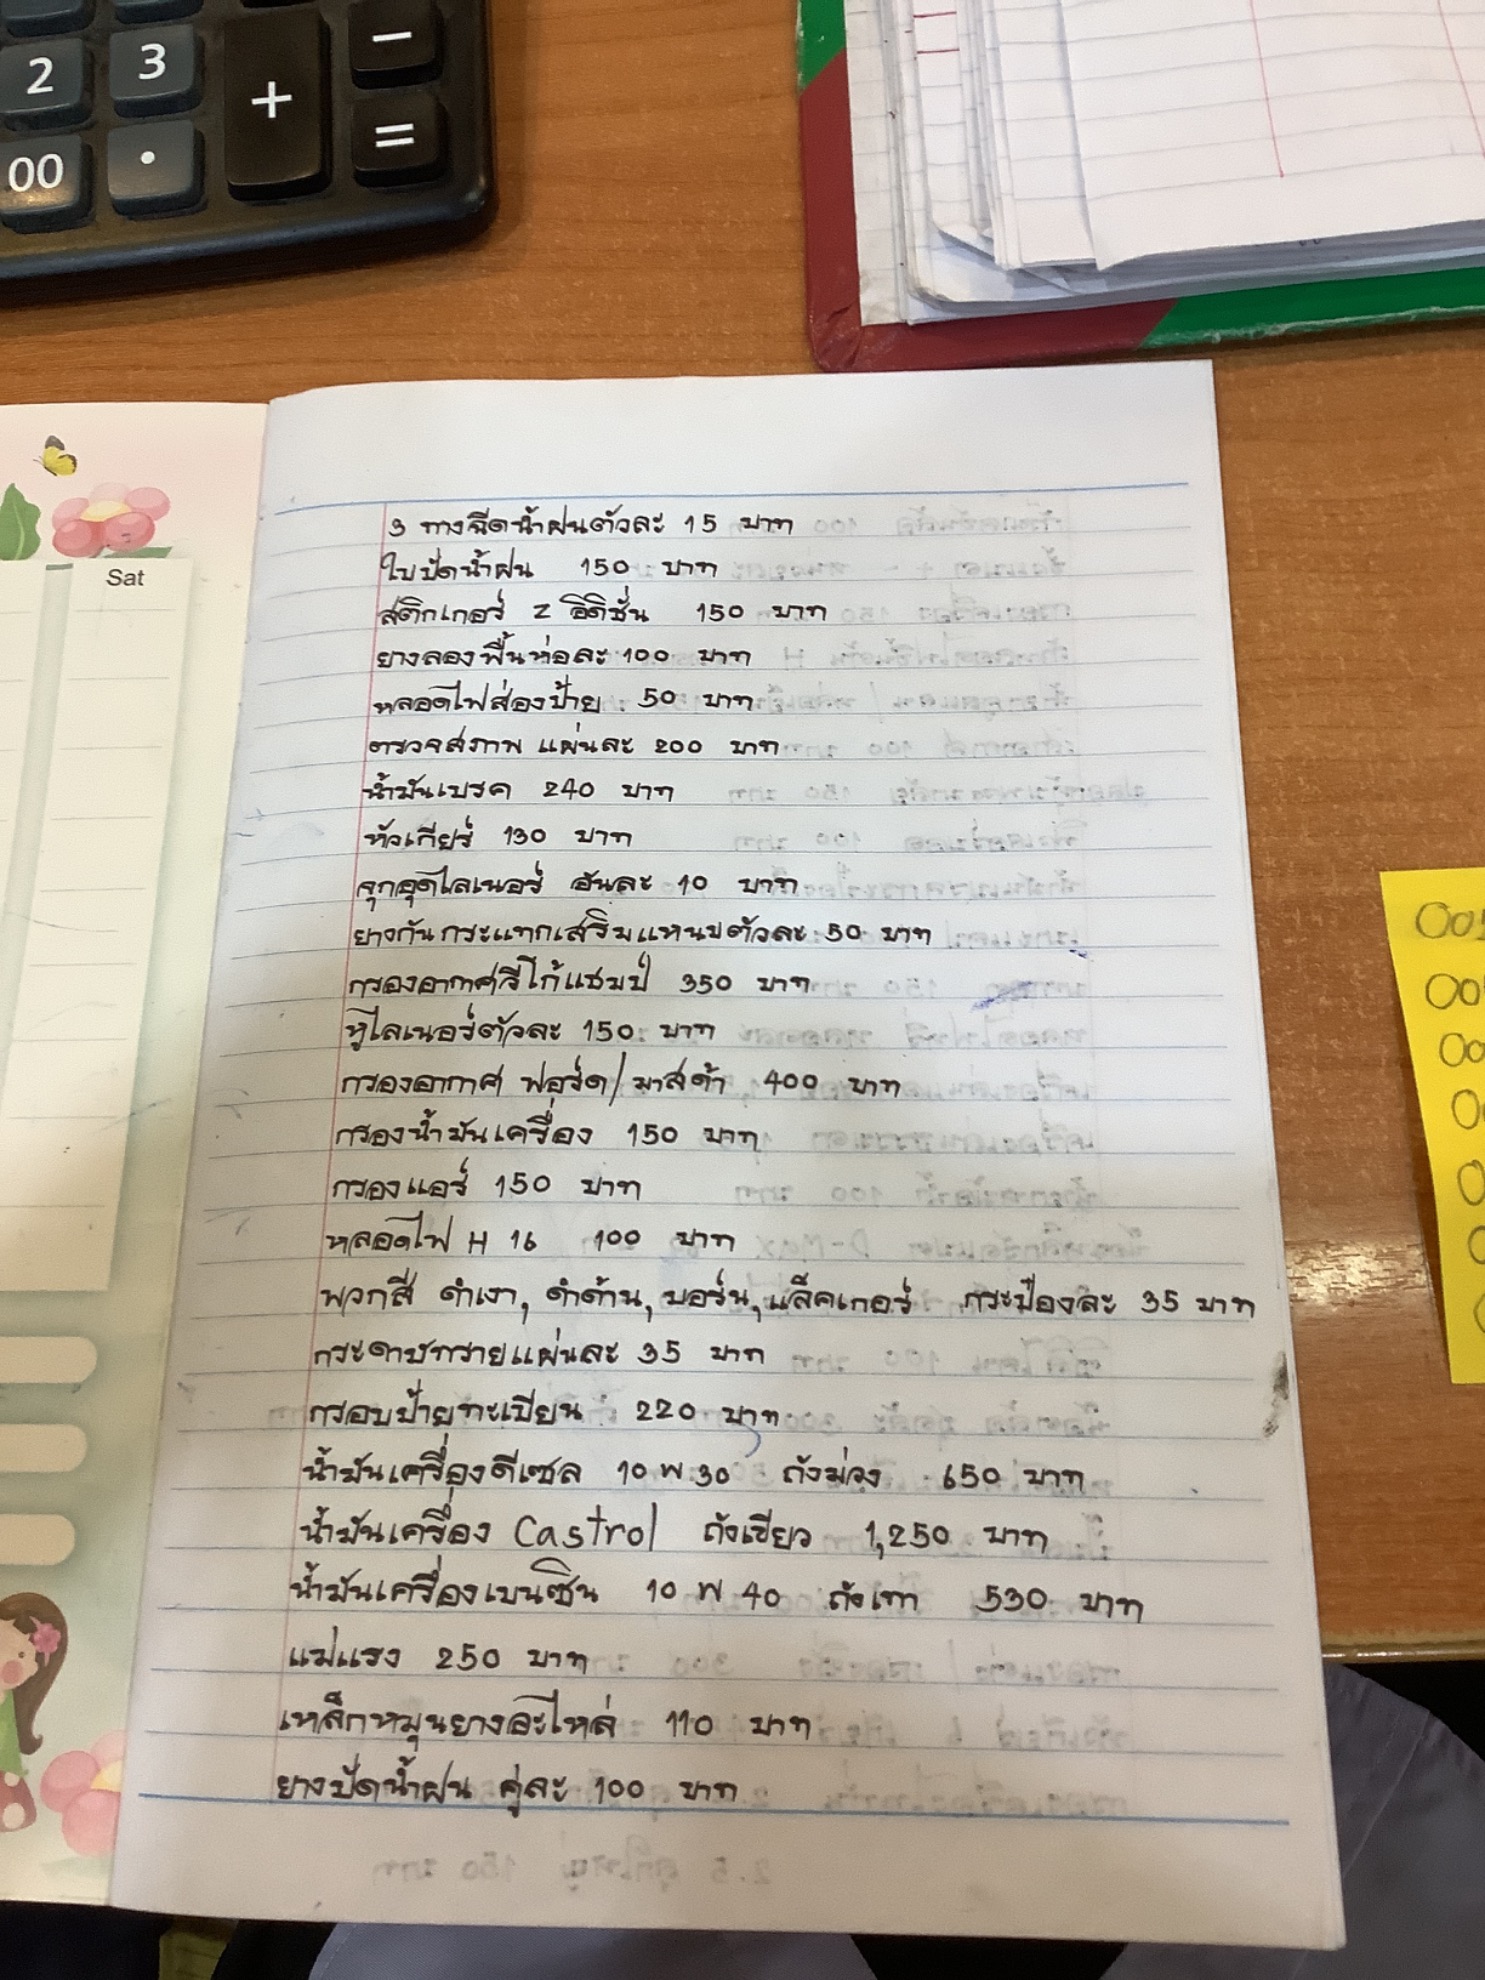 2 3 + -
00 . =
Sat
3 ทางฉีดน้ำฝนตัวละ 15 บาท
ใบปัดน้ำฝน 150 บาท
สติกเกอร์ Z อิดิชั่น 150 บาท
ยางลองพื้นห่อละ 100 บาท
หลอดไฟส่องป้าย 50 บาท
ตรวจสภาพ แผ่นละ 200 บาท
น้ำมันเบรค 240 บาท
หัวเกียร์ 130 บาท
จุกอุดไลเนอร์ อันละ 10 บาท
ยางกันกระแทกเสริมแหนบตัวละ 50 บาท
กรองอากาศรีโก้แชมป์ 350 บาท
หูไลเนอร์ตัวละ 150 บาท
กรองอากาศ ฟอร์ด/มาสด้า 400 บาท
กรองน้ำมันเครื่อง 150 บาท
กรองแอร์ 150 บาท
หลอดไฟ H 16 100 บาท
พวกสี ดำเงา, ดำด้าน, บอร์น, แล็คเกอร์ กระป๋องละ 35 บาท
กระดาษทรายแผ่นละ 35 บาท
กรอบป้ายทะเบียน 220 บาท
น้ำมันเครื่องดีเซล 10 W 30 ถังม่วง 650 บาท
น้ำมันเครื่อง Castrol ถังเขียว 1,250 บาท
น้ำมันเครื่องเบนซิน 10 W 40 ถังเทา 530 บาท
แม่แรง 250 บาท
เหล็กหมุนยางอะไหล่ 110 บาท
ยางปัดน้ำฝน คู่ละ 100 บาท